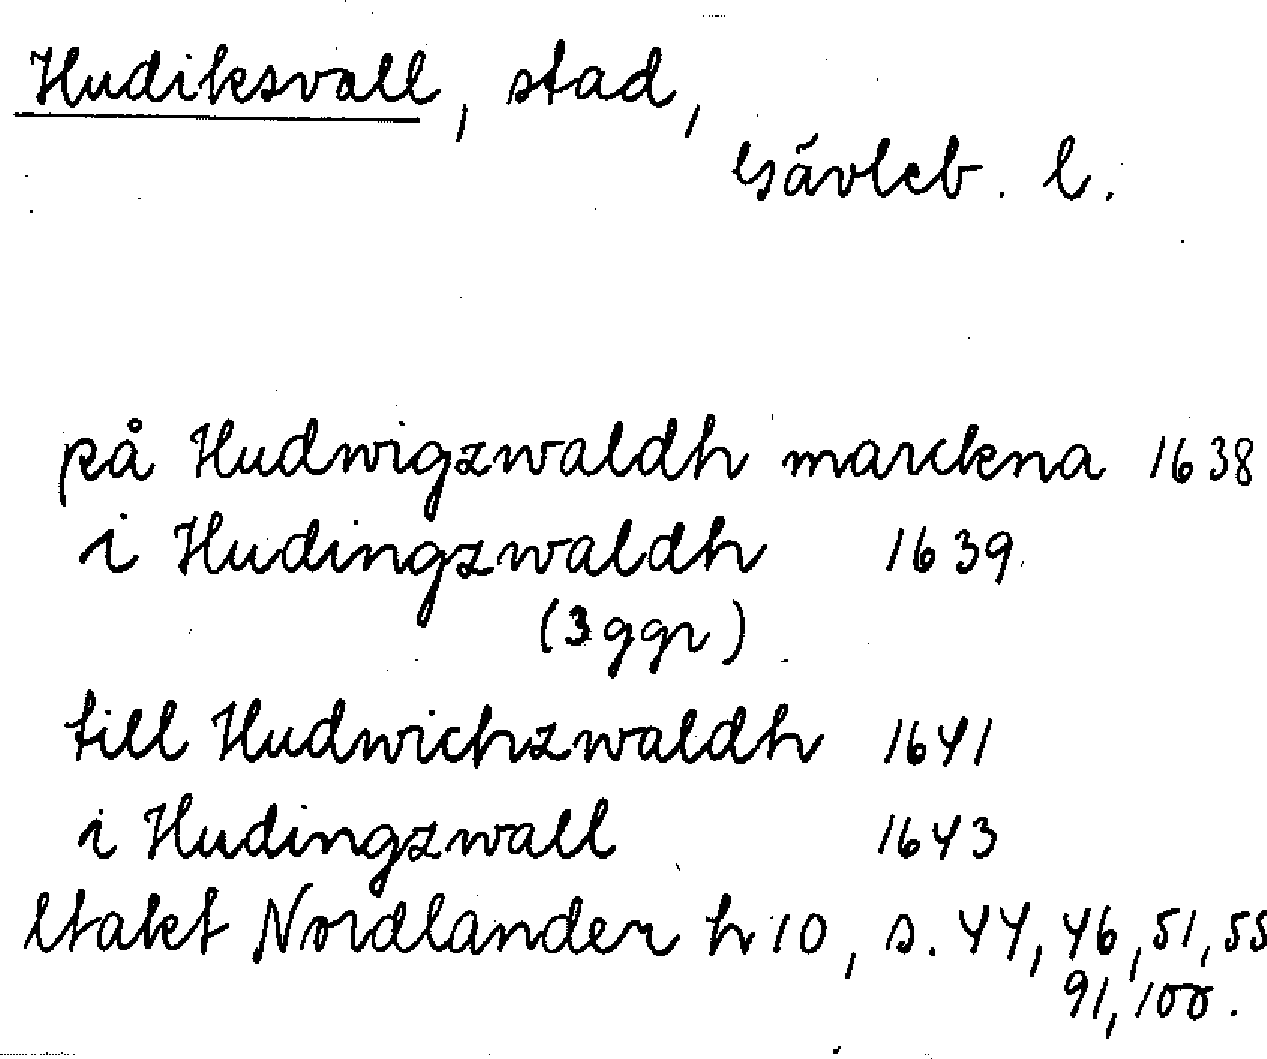 Hudiksvall, stad,
Gävleb. l.
på Hudwigzwaldh marckna 1638
i Hudingzwaldh 1639
(3 ggr)
till Hudwichzwaldh 1641
i Hudingzwall 1643
Nordlander h 10, s. 44, 46, 51, 55
91, 100.